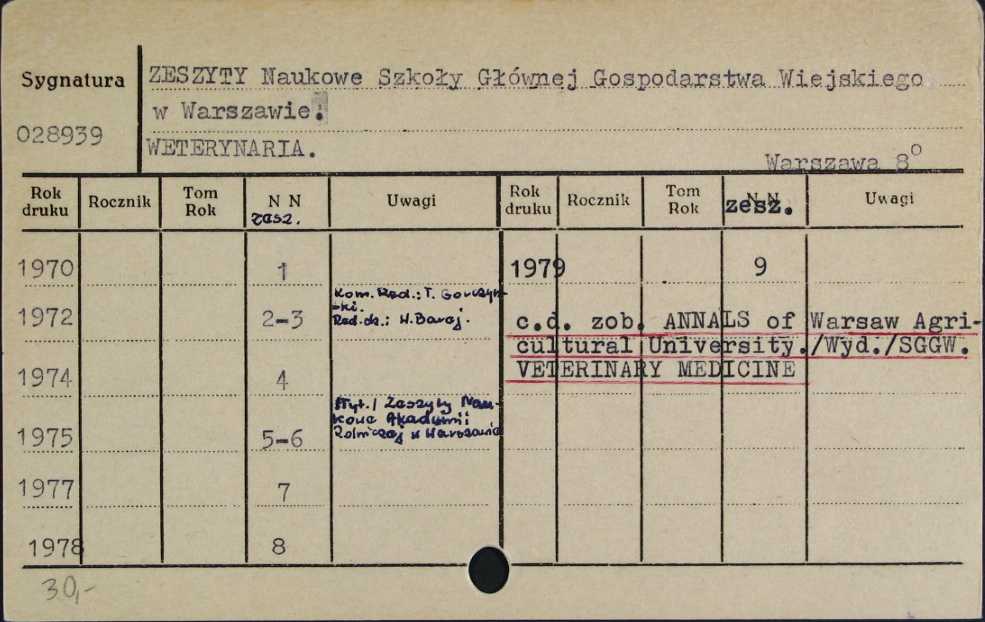 Sygnatura
028939
ZESZYTY Naukowe Szkoły Głównej Gospodarstwa Wiejskiego
w Warszawie.
WETERYNARIA.
Warszawa 8°
Rok druku Rocznik Tom Rok N N zesz. Uwagi Rok druku Rocznik Tom Rok N N zesz. Uwagi
1970 1 1979 9
Kom. Red.: T. Gorczyń-
-ki.
1972 2-3 Red. dz.: W. Baraj.
c.d. zob. ANNALS of Warsaw Agri-
cultural University./Wyd./SGGW.
VETERINARY MEDICINE
1974 4
/Tyt./ Zeszyty Nau-
kowe Akademii
1975 5-6 Rolniczej w Warszawie
1977 7
1978 8
30,-